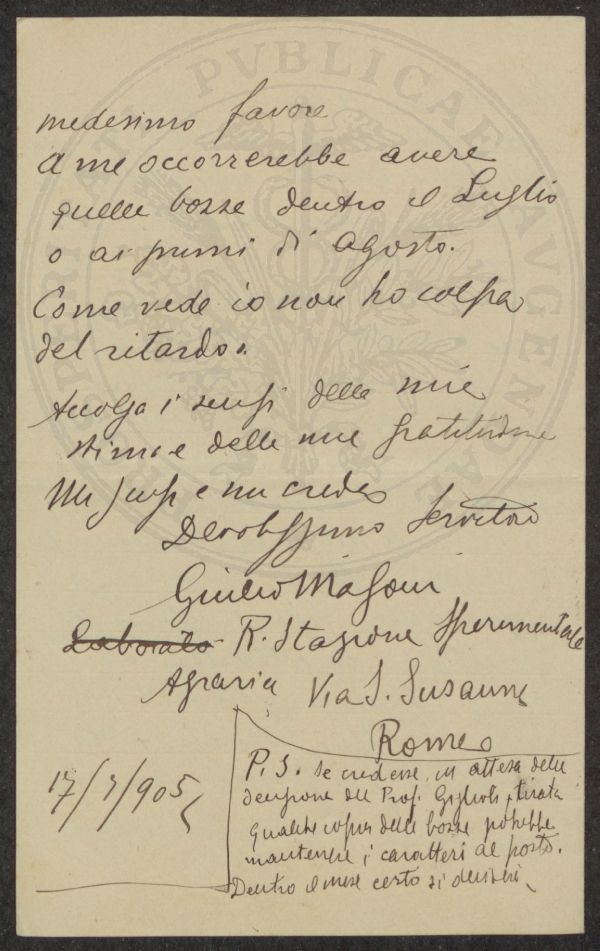 PVBLICAE AVGENDAE
medesimo favore
A me occorrerebbe avere
quelle bozze dentro il Luglio
o ai primi di Agosto.
Come vede io non ho colpa
del ritardo.
Accolga i sensi della mia
stima e della mia gratitudine
Mi scusi e mi creda
Devotissimo Servitore
Giulio Masoni
Laborato R. Stazione Sperimentale
Agraria Via S. Susanna
Roma
17/7/905
P.S. se credesse, in attesa della
decisione del Prof. Giglioli, tirata
qualche copia delle bozze potrebbe
mantenere i caratteri al posto.
Dentro il mese certo si